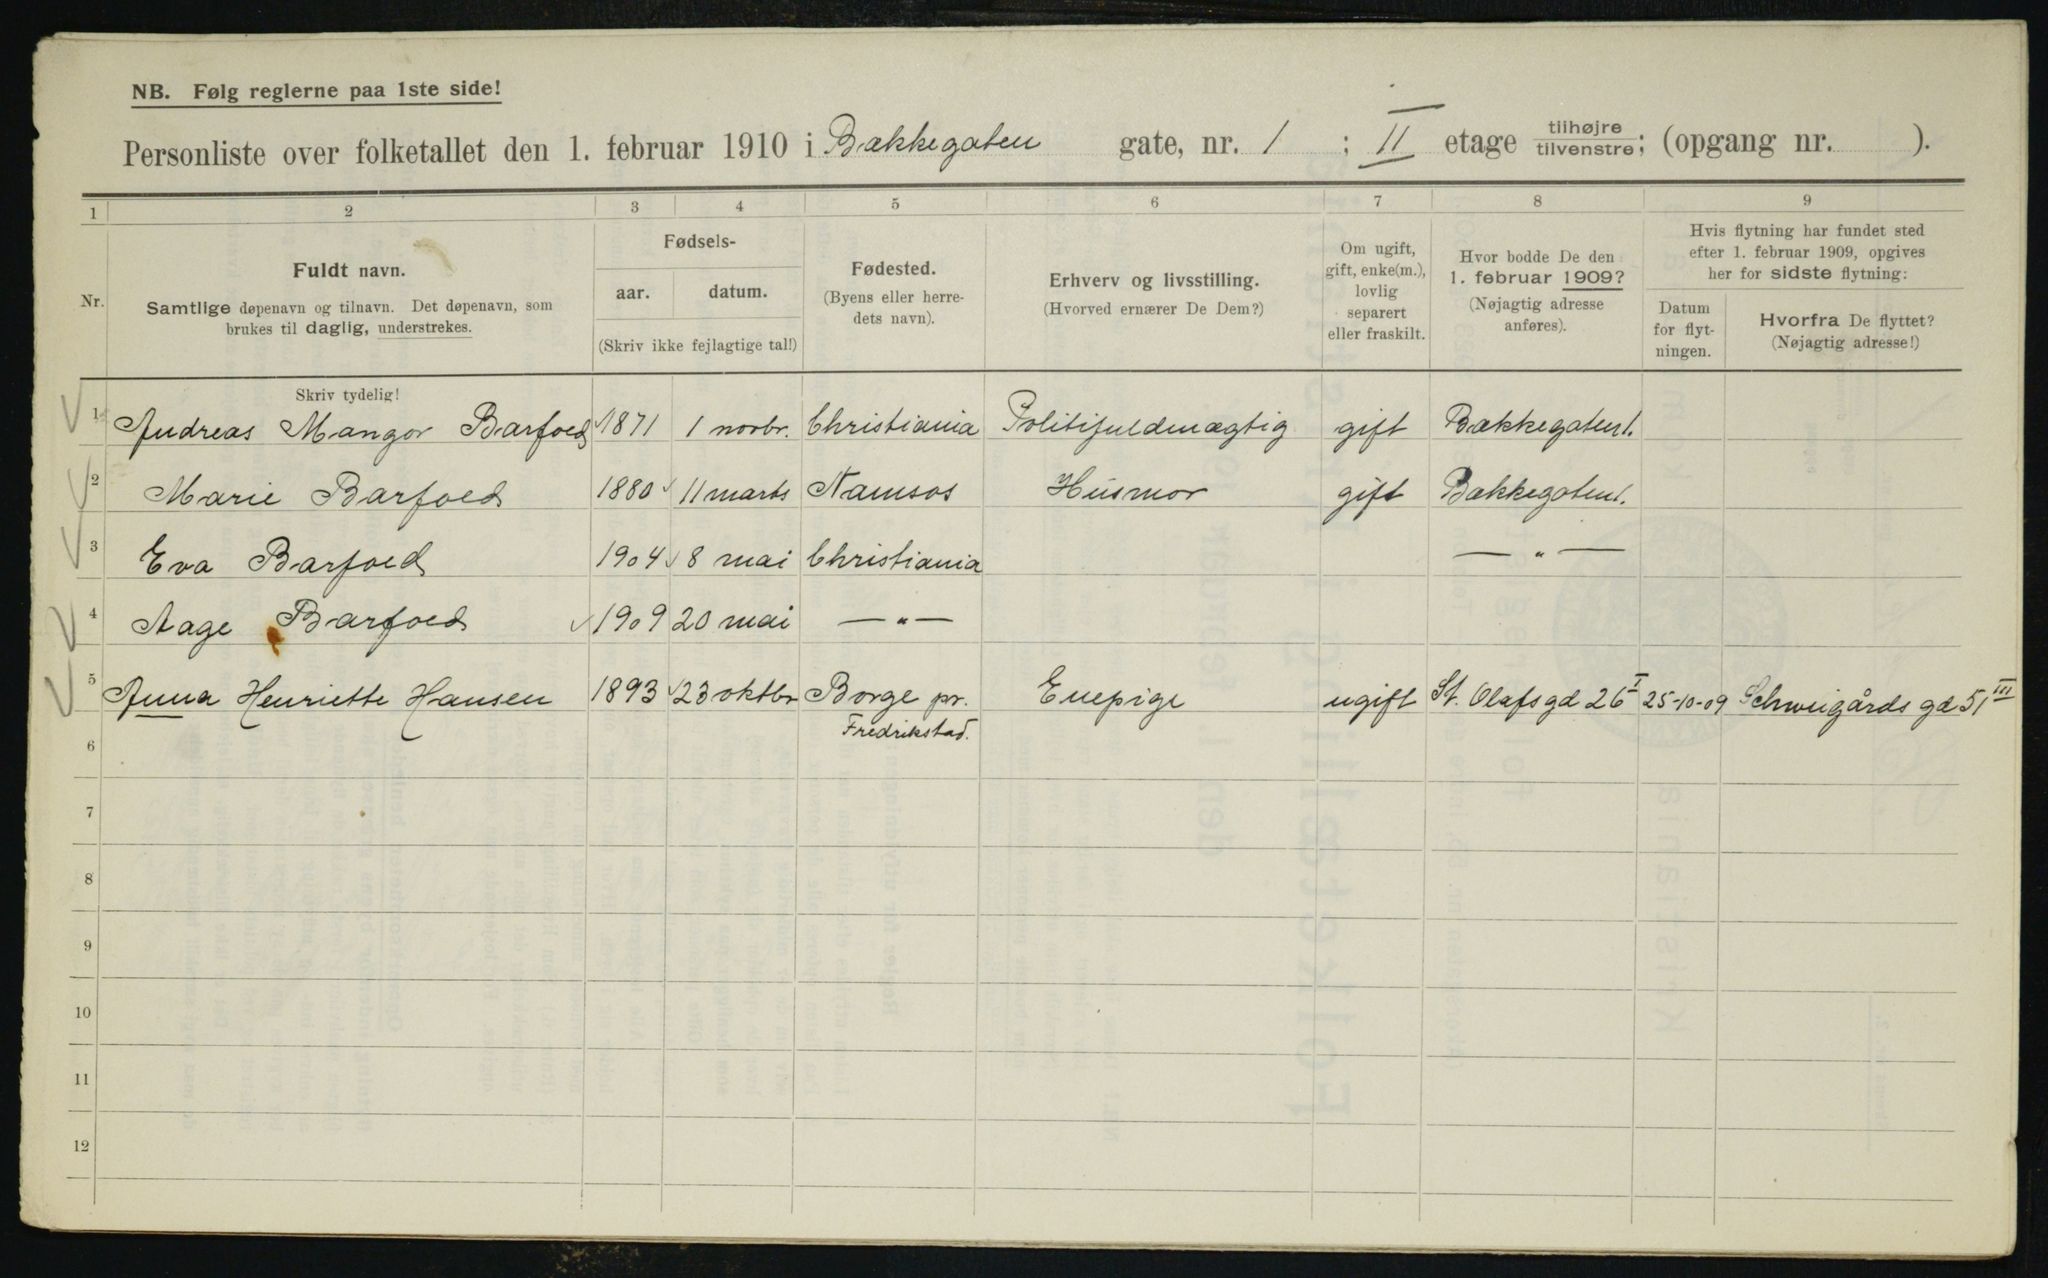 NB. Følg reglerne paa 1ste side!
Personliste over folketallet den 1. februar 1910 i Bækkegaten gate, nr. 1 ; II etage tilhøjre tilvenstre; (opgang nr. ).
1 2 3 4 5 6 7 8 9
Nr.
Fuldt navn.
Samtlige døpenavn og tilnavn. Det døpenavn, som
brukes til daglig, understrekes.
Fødsels-
aar. datum.
(Skriv ikke fejlagtige tal!)
Fødested.
(Byens eller herre-
dets navn).
Erhverv og livsstilling.
(Hvorved ernærer De Dem?)
Om ugift,
gift, enke(m.),
lovlig
separert
eller fraskilt.
Hvor bodde De den
1. februar 1909?
(Nøjagtig adresse
anføres).
Hvis flytning har fundet sted
efter 1. februar 1909, opgives
her for sidste flytning:
Datum
for flyt-
ningen.
Hvorfra De flyttet?
(Nøjagtig adresse!)
Skriv tydelig!
1 Andreas Mangor Barfoed 1871 1 novbr. Christiania Politifuldmægtig gift Bækkegaten 1.
2 Marie Barfoed 1880 11 marts Namsos Husmor gift Bækkegaten 1.
3 Eva Barfoed 1904 8 mai Christiania — " —
4 Aage Barfoed 1909 20 mai — " —
5 Anna Henriette Hansen 1893 23 oktbr Borge pr. Enepige ugift St. Olafsgd 26 I 25-10-09 Schweigårds gd 51 III
Fredrikstad.
6
7
8
9
10
11
12